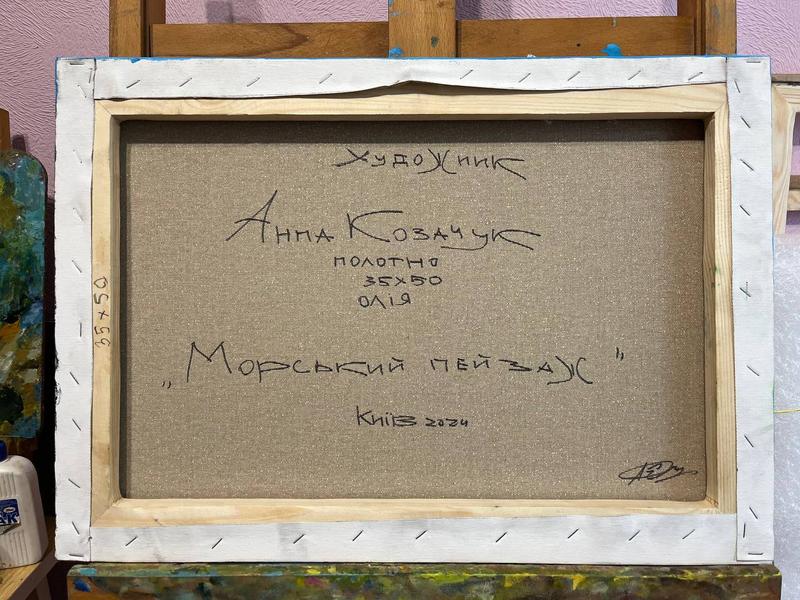 Художник
Анна Козачук
полотно
35х50
олія
„Морський пейзаж”
Київ 2024
35х50